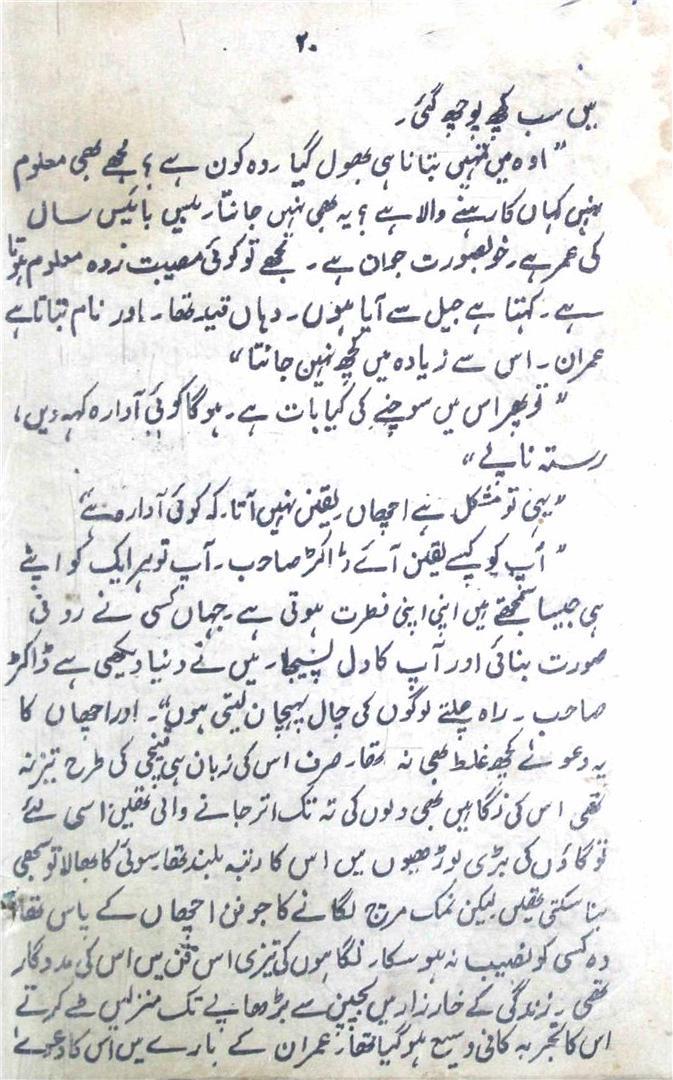 ۲۰
میں سب کچھ پوچھ گئی۔
" اوہ میں تمہیں بتانا ہی بھول گیا۔ وہ کون ہے ؟ مجھے بھی معلوم
نہیں کہاں کا رہنے والا ہے ؟ یہ بھی نہیں جانتا۔ بیس بائیس سال
کی عمر ہے۔ خوبصورت جوان ہے۔ مجھے تو کوئی مصیبت زدہ معلوم ہوتا
ہے۔ کہتا ہے جیل سے آیا ہوں۔ وہاں قید تھا۔ اور نام بتاتا ہے
عمران۔ اس سے زیادہ میں کچھ نہیں جانتا "
" تو پھر اس میں سوچنے کی کیا بات ہے۔ ہوگا کوئی آوارہ کہہ دیں،
رستہ ناپے "
" یہی تو مشکل ہے اچھاں یقین نہیں آتا۔ کہ کوئی آوارہ ہے "
" آپ کو کیسے یقین آئے ڈاکٹر صاحب۔ آپ تو ہر ایک کو اپنے
ہی جیسا سمجھتے ہیں اپنی اپنی فطرت ہوتی ہے۔ جہاں کسی نے رونی
صورت بنائی اور آپ کا دل پسیجا۔ میں نے دنیا دیکھی ہے ڈاکٹر
صاحب۔ راہ چلتے لوگوں کی چال پہچان لیتی ہوں "۔ اور اچھاں کا
یہ دعوےٰ کچھ غلط بھی نہ تھا۔ صرف اس کی زبان ہی قینچی کی طرح تیز نہ
تھی اس کی نگاہیں بھی دلوں کی تہ تک اتر جانے والی تھیں اسی لئے
تو گاؤں کی بڑی بوڑھیوں میں اس کا رتبہ بلند تھا۔ سوئی کا بھالا تو سبھی
بنا سکتی تھیں لیکن نمک مرچ لگانے کا جو فن اچھاں کے پاس تھا
وہ کسی کو نصیب نہ ہو سکا۔ نگاہوں کی تیزی اس فن میں اس کی مددگار
تھی۔ زندگی کے خارزار میں بچپن سے بڑھاپے تک منزلیں طے کرتے
اس کا تجربہ کافی وسیع ہو گیا تھا۔ عمران کے بارے میں اس کا دعوےٰ